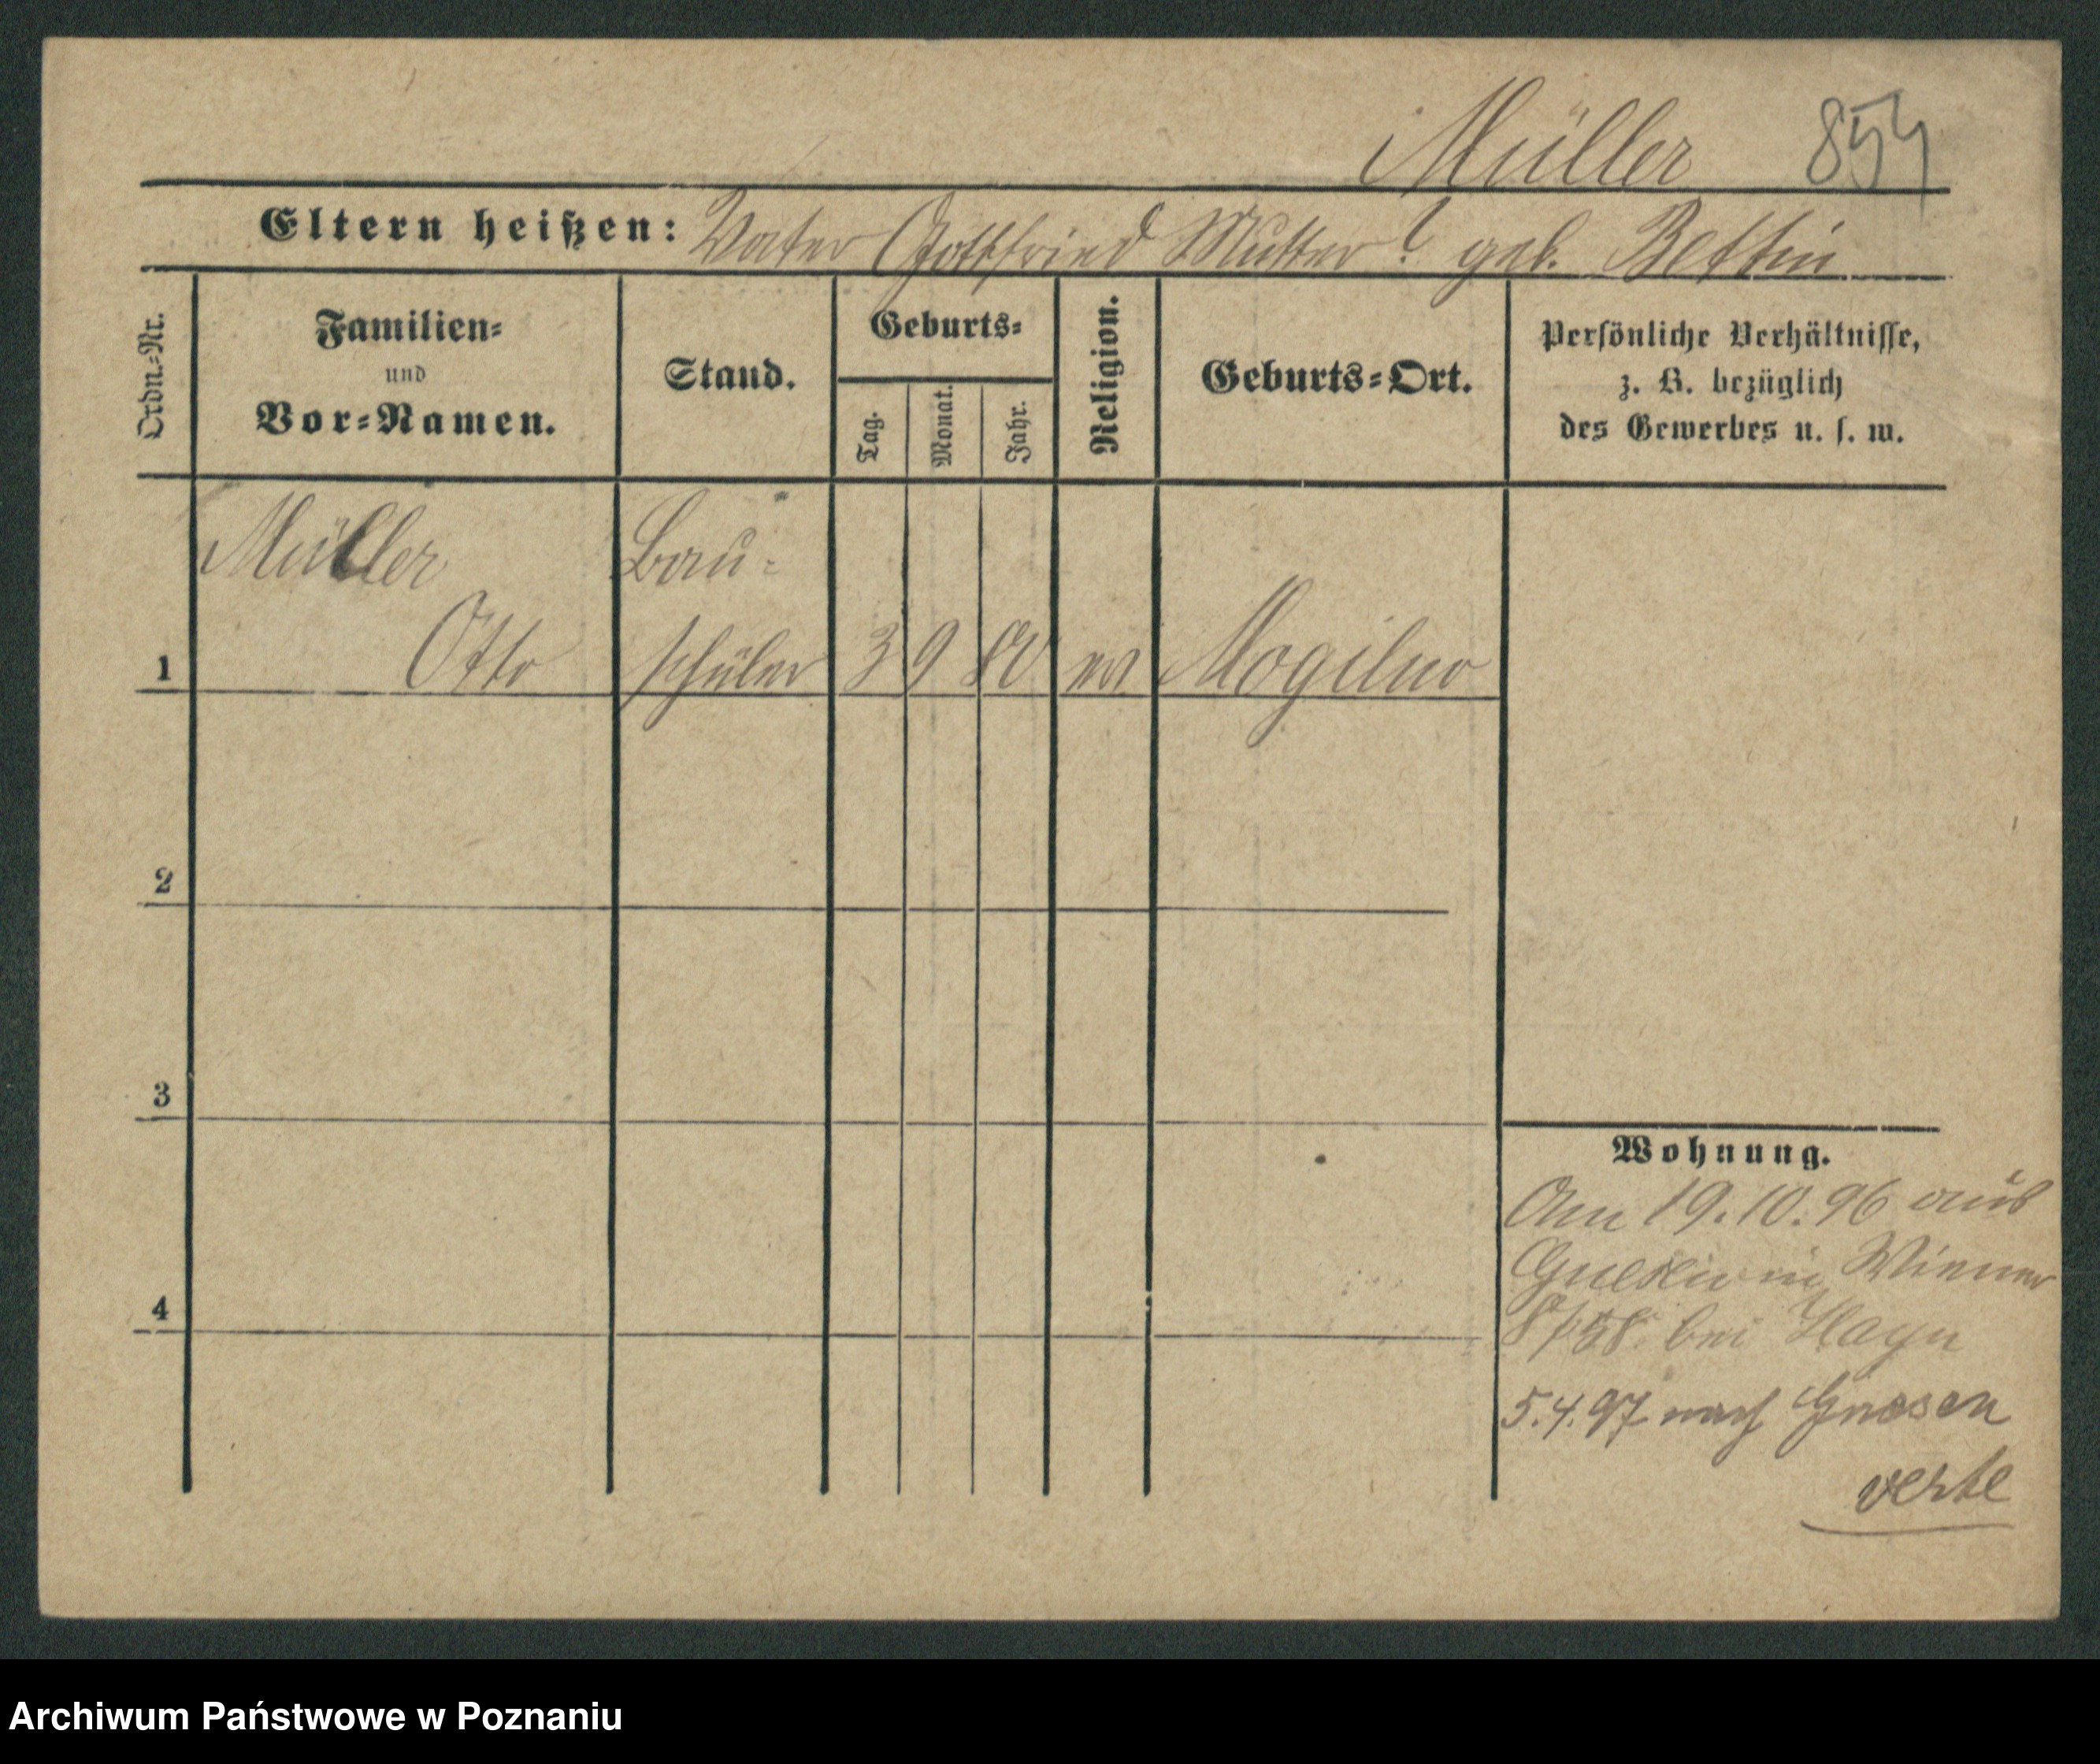 Müller 854
Eltern heißen: Vater Gottfried Mutter ? geb. Bettin
Ordn.=Nr.
Familien=
und
Vor=Namen.
Stand.
Geburts=
Tag.
Monat.
Jahr.
Religion.
Geburts=Ort.
Persönliche Verhältnisse,
z. B. bezüglich
des Gewerbes u. s. w.
Müller Bau=
1 Otto schüler 3 9 80 ev Mogilno
2
3
4
Wohnung.
Am 19.10.96 aus
in Wiener
bei Hayn
5.4.97 nach Gnesen
verte
Archiwum Państwowe w Poznaniu